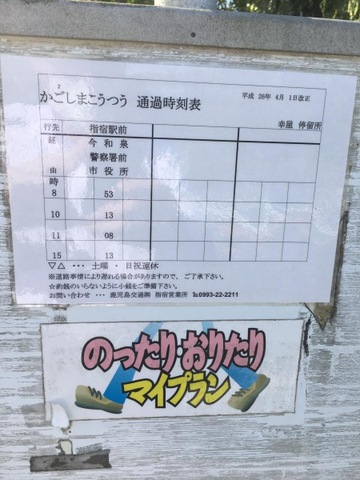 かごしまこうつう 通過時刻表 平成 26年 4月 1日改正
行先 指宿駅前 幸屋 停留所
経 今和泉
警察署前
由 市役所
時
8 53
10 13
11 08
15 13
▽△ ･･･ 土曜 ・ 日祝運休
※道路事情により遅れる場合がありますので、ご了承下さい。
☆釣銭のいらないように小銭をご準備下さい。
お問い合わせ ･･･ 鹿児島交通㈱ 指宿営業所 ℡0993-22-2211
のったり・おりたり
マイプラン